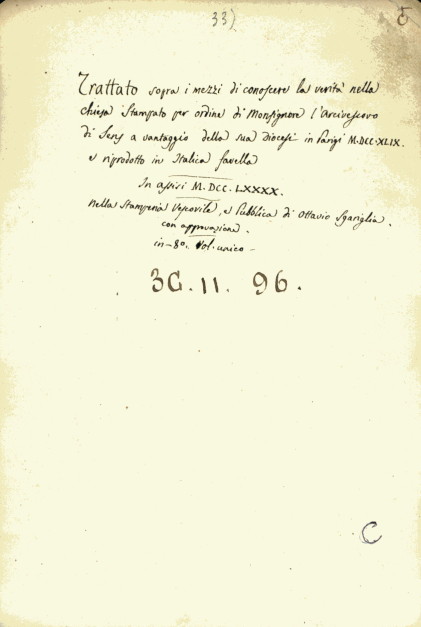 33)
5
Trattato sopra i mezzi di conoscere la verità nella
chiesa Stampato per ordine di Monsignore l'Arcivescovo
di Sens a vantaggio della sua diocesi in Parigi M.DCC.XLIX.
e riprodotto in Italica favella
In assisi M.DCC.LXXXX.
Nella Stamperia Vescovile, e Pubblica di Ottavio Sgariglia.
con approvazione.
in-8º. Vol. unico-
3G. 11. 96.
C